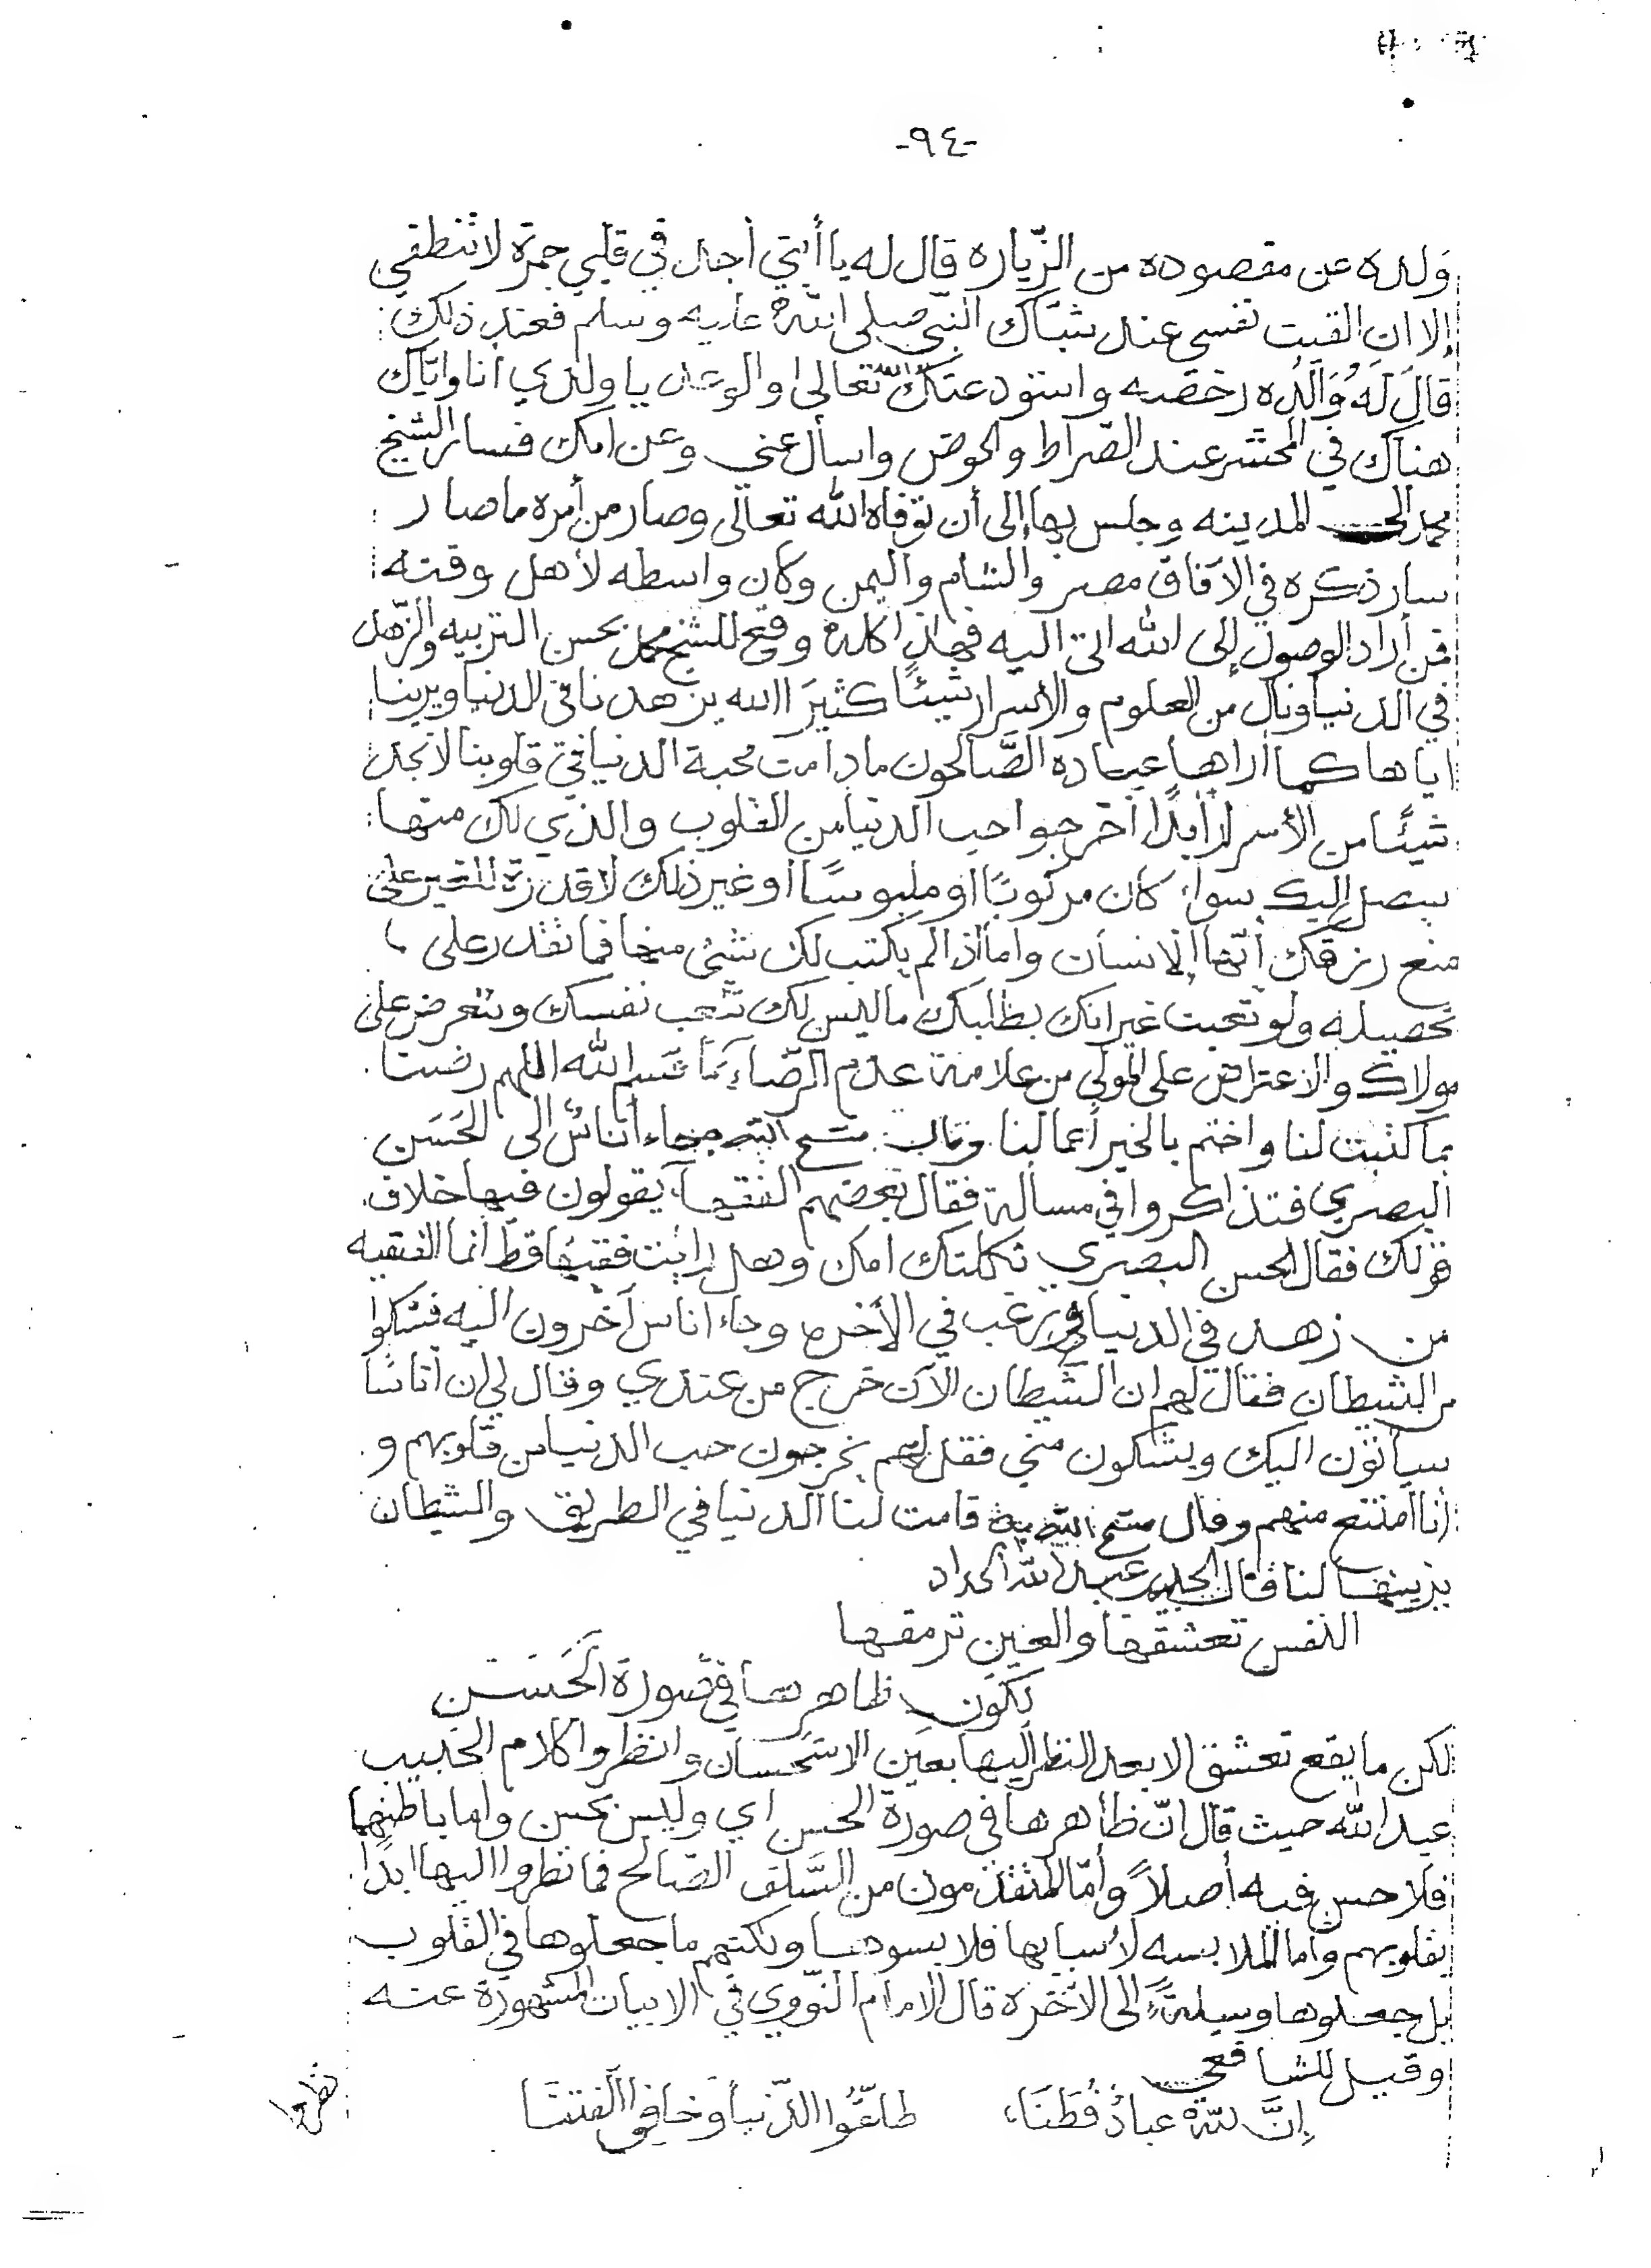 -٩٤-
وَلده عن مقصوده من الزّياره قال له يا أبتي أجد في قلبي جمرة لا تنطفي
إلا ان القيت نفسي عند شبّاك النّبي صلى اللّه عليه وسلم فعند ذلك
قالَ لَهُ وَالَدُه رخصه واستودعتك اللّه تعالى والوعد يا ولدي أنا وايّاك
هناك في المحشر عند الصّراط والحوض واسأل عني وعن امك فسار الشيخ
محمد الى المدينه وجلس بها إلى أن توفاه الله تعالى وصار من أمره ما صار
سار ذكره في الآفاق مصر والشام واليمن وكان واسطه لأهل وقته
فمن أراد الوصول إلى الله اتى اليه فهذا كله وقع للشيخ محمد بحسن التربيه والزّهد
في الدنيا ونال من العلوم والأسرار شيئًا كثيرَا الله يزهدنا في الدنيا ويرينا
اياها كما أراها عباده الصَّالحون مادامت محبة الدنيا في قلوبنا لا نجد
شيئًا من الأسرار أبدًا أخرجوا حب الدنيا من القلوب والذي لك منها
سيصل إليك سواء كان مركوبًا أو ملبوسًا أو غير ذلك لا قدرة للغير على
منع رزقك أيّها الانسان واما أذا لم يكتب لك شئ منها فما تقدر على
تحصيله ولو تعبت غير انك بطلبك ما ليس لك تتعب نفسك وتتعرض على
مولاك والاعتراض على المولى من علامة عدم الرّضاء بما قسم الله اللهم رضنا
بما كتبت لنا واختم بالخير أعمالنا وقال متع الله به جاء أناسٌ الى الحَسَن
البصري فتذاكروا في مسألة فقال بعضهم الفقهاء يقولون فيها خلاف
قولك فقال الحسن البصري ثكلتك امك وهل رايت فقيهًا قط أنما الفقيه
من زهد في الدنيا ورغب في الأخره وجاء اناس آخرون اليه فشكوا
من الشيطان فقال لهم ان الشَّيطان الآن خرج من عندي وقال لي ان أناسًا
سيأتون اليك ويشكون مني فقل لهم يخرجون حب الدنيا من قلوبهم و
أنا امتنع منهم وقال متع الله به قامت لنا الدنيا في الطريق والشيطان
يزينها لنا قال الحبيب عبد الله الحداد
النفس تعشقها والعين ترمقها
لكون ظاهرها في صُورة الَحَسَن
لكن ما يقع تعشق الا بعد النظر إليها بعين الاستحسان وانظروا كلام الحبيب
عبد اللّه حيث قال انّ ظاهرها في صورة الحسن اي وليس بحسن واما باطنها
فلا حسن فيه أصلاً وأمّا المتقدّمون من السَّلف الصّالح فما نظروا اليها ابدًا
بقلوبهم وأما الملابسه لأسبابها فلابسوها ولكنهم ما جعلوها في القلوب
بل جعلوها وسيلةً إلى الأخره قال الامام النّووي في الابيات المشهورة عنه
وقيل للشافعي
إنَّ للّه عبادٌ فُطَنَا، طلّقُوا الدّنيا وخافوا الفتنَا
نظروا